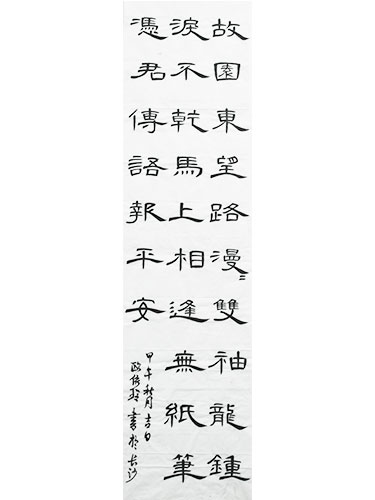 故園東望路漫〻雙袖龍鍾
淚不乾馬上相逢無紙筆
憑君傳語報平安
甲午秋月吉日
書於长沙